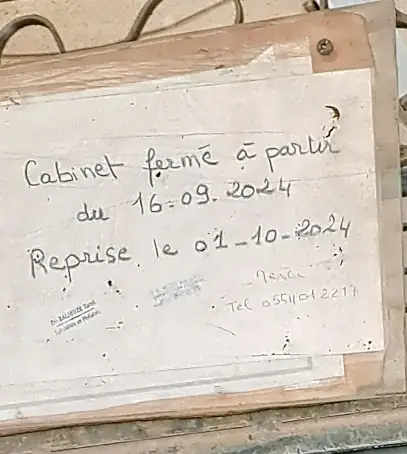 Cabinet fermé à partir
du 16.09.2024
Reprise le 01-10-2024
Merci
Tel 0551012217